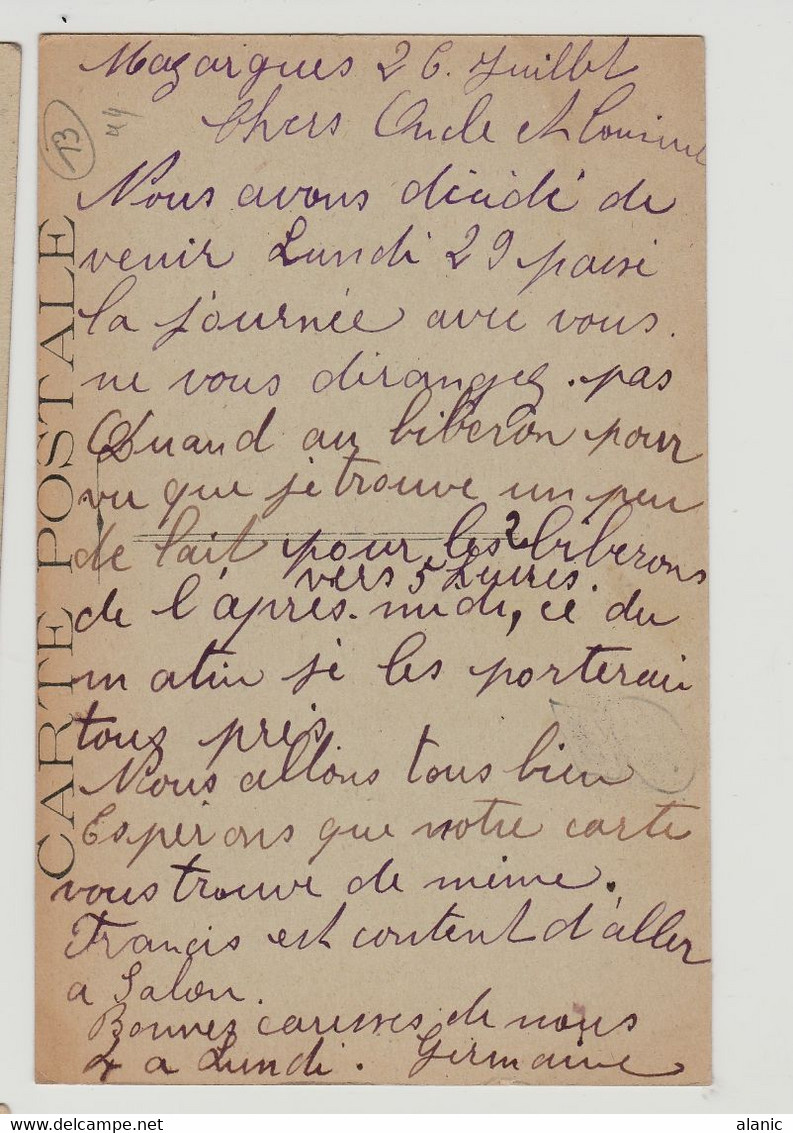 Mazargues 26. Juillet
Chers Oncle et Cousine
Nous avons décidé de
venir Lundi 29 passé
la journée avec vous.
ne vous dérangez. pas
Quand au biberon pour
vu que je trouve un peu
de lait pour les 2 biberons
vers 5 heures.
de l'après-midi, ce du
matin je les porterais
tous près.
Nous allons tous bien
Espérons que notre carte
vous trouve de même.
Francis est content d'aller
a Salon.
Bonnes caresses de nous
4 a Lundi. Germaine
CARTE POSTALE
13
44
alanic